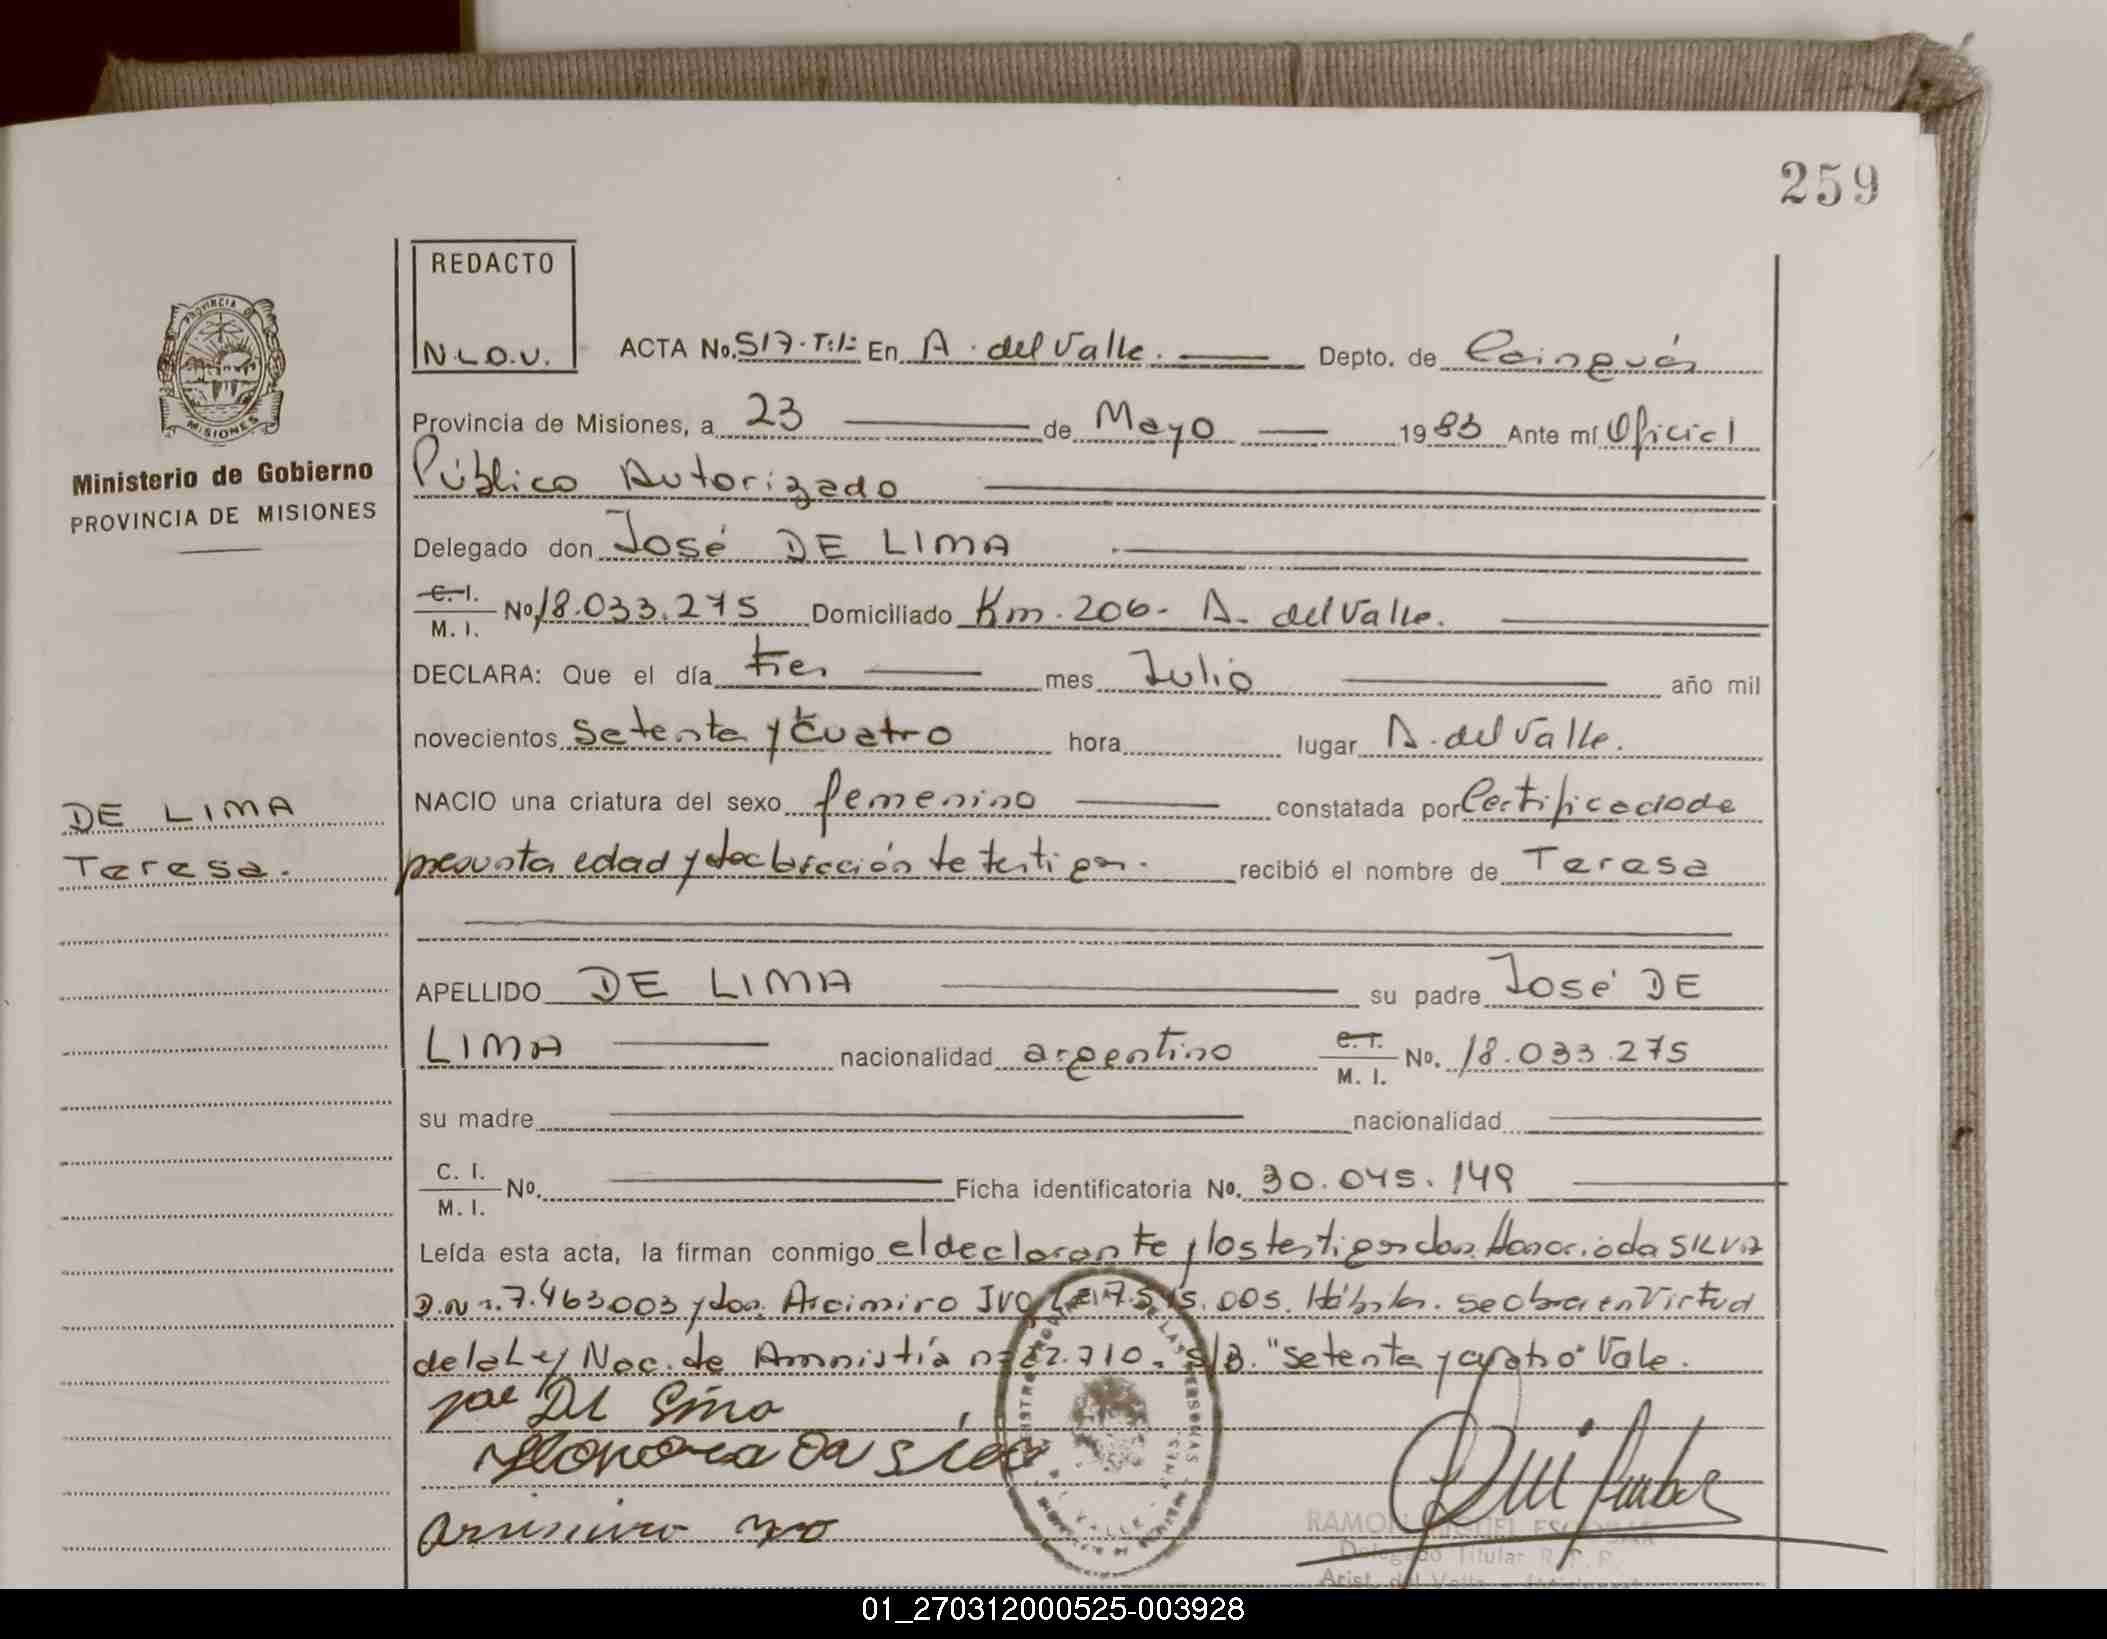 259
REDACTO
N.L.O.V.
PROVINCIA DE
MISIONES
Ministerio de Gobierno
PROVINCIA DE MISIONES
ACTA No. 517.T:I: En A. del Valle. Depto. de Cainguás
Provincia de Misiones, a 23 de Mayo 1983 Ante mí Oficial
Público Autorizado
Delegado don José DE LIMA
C. I. / M. I. No. 18.033.275 Domiciliado Km. 206- A. del Valle.
DECLARA: Que el día tres mes Julio año mil
novecientos setenta y cuatro hora lugar A. del Valle.
NACIO una criatura del sexo femenino constatada por Certificado de
presunta edad y declaración de testigos. recibió el nombre de Teresa
DE LIMA
Teresa.
APELLIDO DE LIMA su padre José DE
LIMA nacionalidad argentino C. I. / M. I. No. 18.033.275
su madre nacionalidad
C. I. / M. I. No. Ficha identificatoria No. 30.045.149
Leída esta acta, la firman conmigo el declarante y los testigos don Honorio da SILVA
D.N.I. 7.463.003 y don Arcimiro IVO .005. Hábiles. se obra en Virtud
de la Ley Nac. de Amnistía nº 22.710. S/B. "setenta y cuatro" Vale.
José De Lima
Honorio da Silva
Arcimiro Ivo
RAMON ESCOBAR
Delegado Titular R. P.
Arist. del Valle
01_270312000525-003928